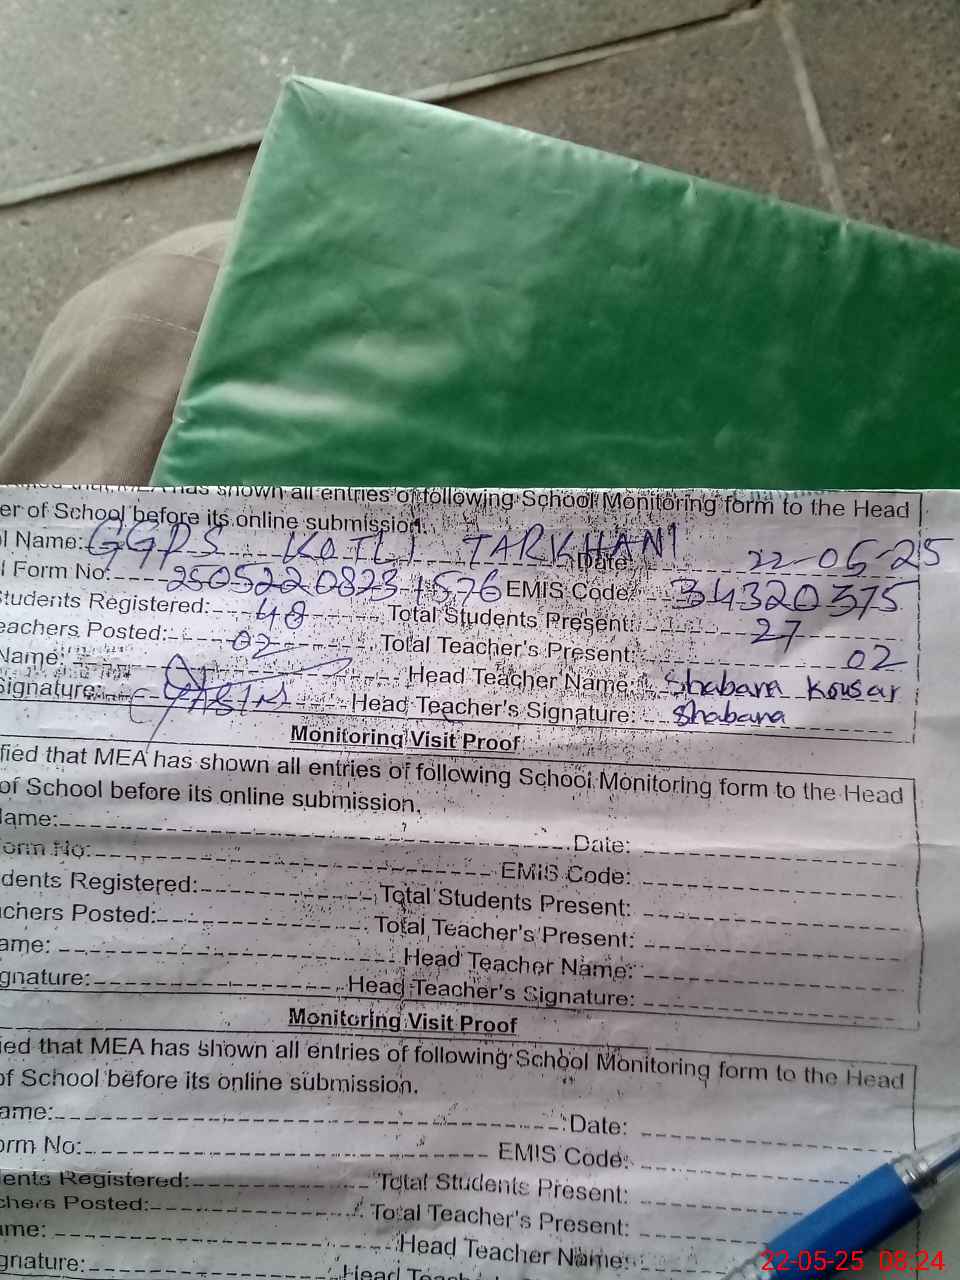 MEA has shown all entries of following School Monitoring form to the Head
er of School before its online submission.
l Name: GGPS KOTLI TARKHANI Date: 22-05-25
l Form No: 2505220823-1576 EMIS Code: 34320375
Students Registered: 48 Total Students Present: 27
eachers Posted: 02 Total Teacher's Present: 02
Name: Head Teacher Name: Shabana Kousar
Signature: Head Teacher's Signature: Shabana
Monitoring Visit Proof
fied that MEA has shown all entries of following School Monitoring form to the Head
of School before its online submission.
lame: Date:
orm No: EMIS Code:
dents Registered: Total Students Present:
chers Posted: Total Teacher's Present:
ame: Head Teacher Name:
gnature: Head Teacher's Signature:
Monitoring Visit Proof
ied that MEA has shown all entries of following School Monitoring form to the Head
of School before its online submission.
ame: Date:
orm No: EMIS Code:
lents Registered: Total Students Present:
chers Posted: Total Teacher's Present:
ame: Head Teacher Name:
gnature: Head
22-05-25 08:24